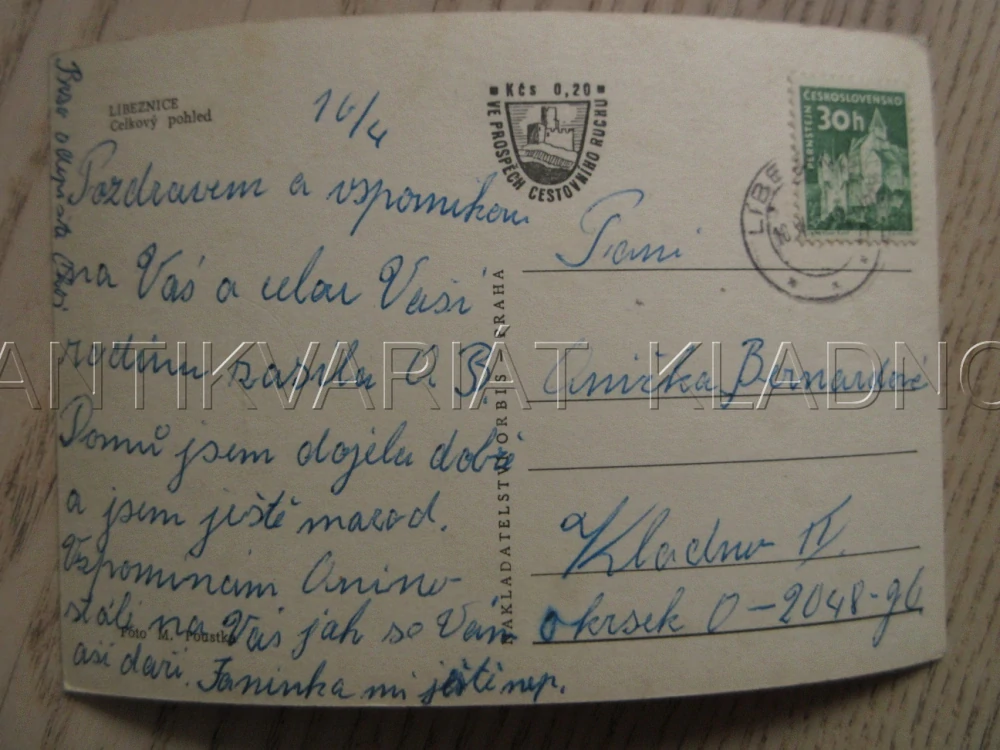 LIBEZNICE
Celkový pohled
16/4
Pozdravem a vzpomínkou
na Vás a celou Vaši
rodinu zasílá A B.
Domů jsem dojela dobře
a jsem ještě marod.
Vzpomínám Anino
stále na Vás jak se Vám
asi daří. Janinka mi ještě nep.
Foto M. Poustka
NAKLADATELSTVÍ ORBIS – PRAHA
Kčs 0,20
VE PROSPĚCH CESTOVNÍHO RUCHU
ČESKOSLOVENSKO
30h
PERNŠTEJN
Paní
Anička Bernardové
Kladno II.
okrsek 0-2048-96
ANTIKVARIÁT KLADNO